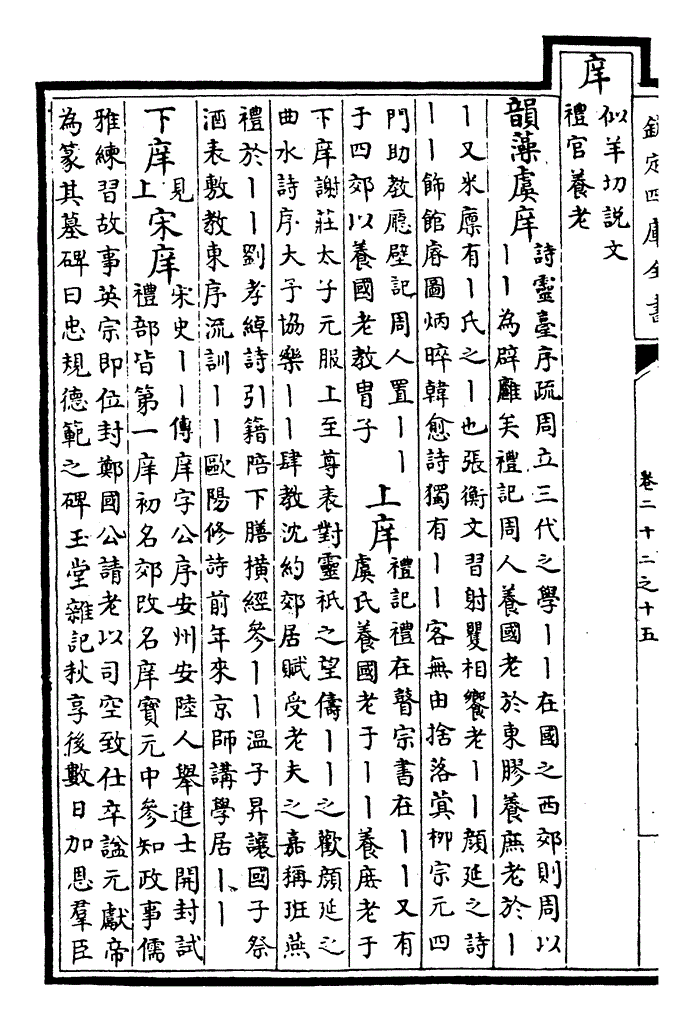 欽定四庫全書
卷二十二之十五
庠
似羊切説文
禮官養老
韻藻虞庠
詩靈臺序疏周立三代之學丨丨在國之西郊則周以
丨丨為辟廱矣禮記周人養國老於東膠養庶老於丨
丨又米廪有丨氏之丨也張衡文習射矍相饗老丨丨顔延之詩
丨丨飾館睿圖炳晬韓愈詩獨有丨丨客無由捨落蓂栁宗元四
門助教廳壁記周人置丨丨
于四郊以養國老教胄子
上庠
禮記禮在瞽宗書在丨丨又有
虞氏養國老于丨丨養庶老于
下庠謝莊太子元服上至尊表對靈祇之望儔丨丨之歡顔延之
曲水詩序大子協樂丨丨肆教沈約郊居賦受老夫之嘉稱班燕
禮於丨丨劉孝綽詩引籍陪下膳横經參丨丨温子昇讓國子祭
酒表敷教東序流訓丨丨歐陽修詩前年來京師講學居丨丨
下庠
見
上
宋庠
宋史丨丨傳庠字公序安州安陸人舉進士開封試
禮部皆第一庠初名郊改名庠寶元中參知政事儒
雅練習故事英宗即位封鄭國公請老以司空致仕卒諡元獻帝
為篆其墓碑曰忠規德範之碑玉堂雜記秋享後數日加恩羣臣